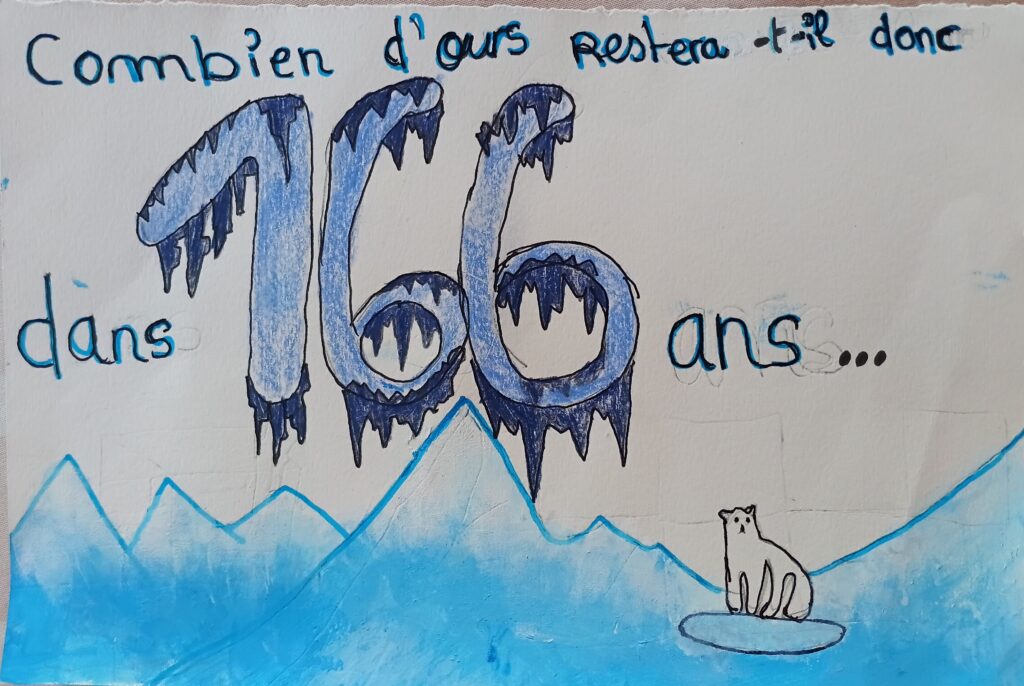 Combien d'ours Restera -t-il donc
dans 166 ans...